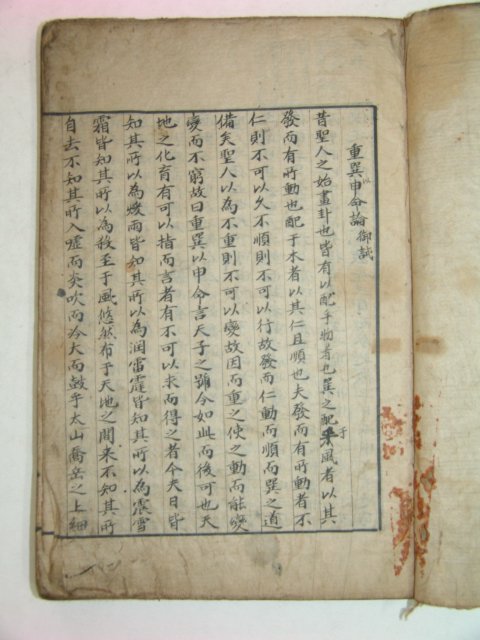 重巽以申命論御試
昔聖人之始畫卦也皆有以配乎物者也巽之配于風者以其
發而有所動也配于木者以其仁且順也夫發而有所動者不
仁則不可以久不順則不可以行故發而仁動而順而巽之道
備矣聖人以為不重則不可以變故因而重之使之動而能變
變而不窮故曰重巽以申命言天子之號令如此而後可也天
地之化育有可以指而言者有不可以求而得之者今夫日皆
知其所以為煖雨皆知其所以為潤雷霆皆知其所以為震雪
霜皆知其所以為殺至于風悠然布于天地之間来不知其所
自去不知其所入噓而炎吹而冷大而鼓乎太山喬岳之上細